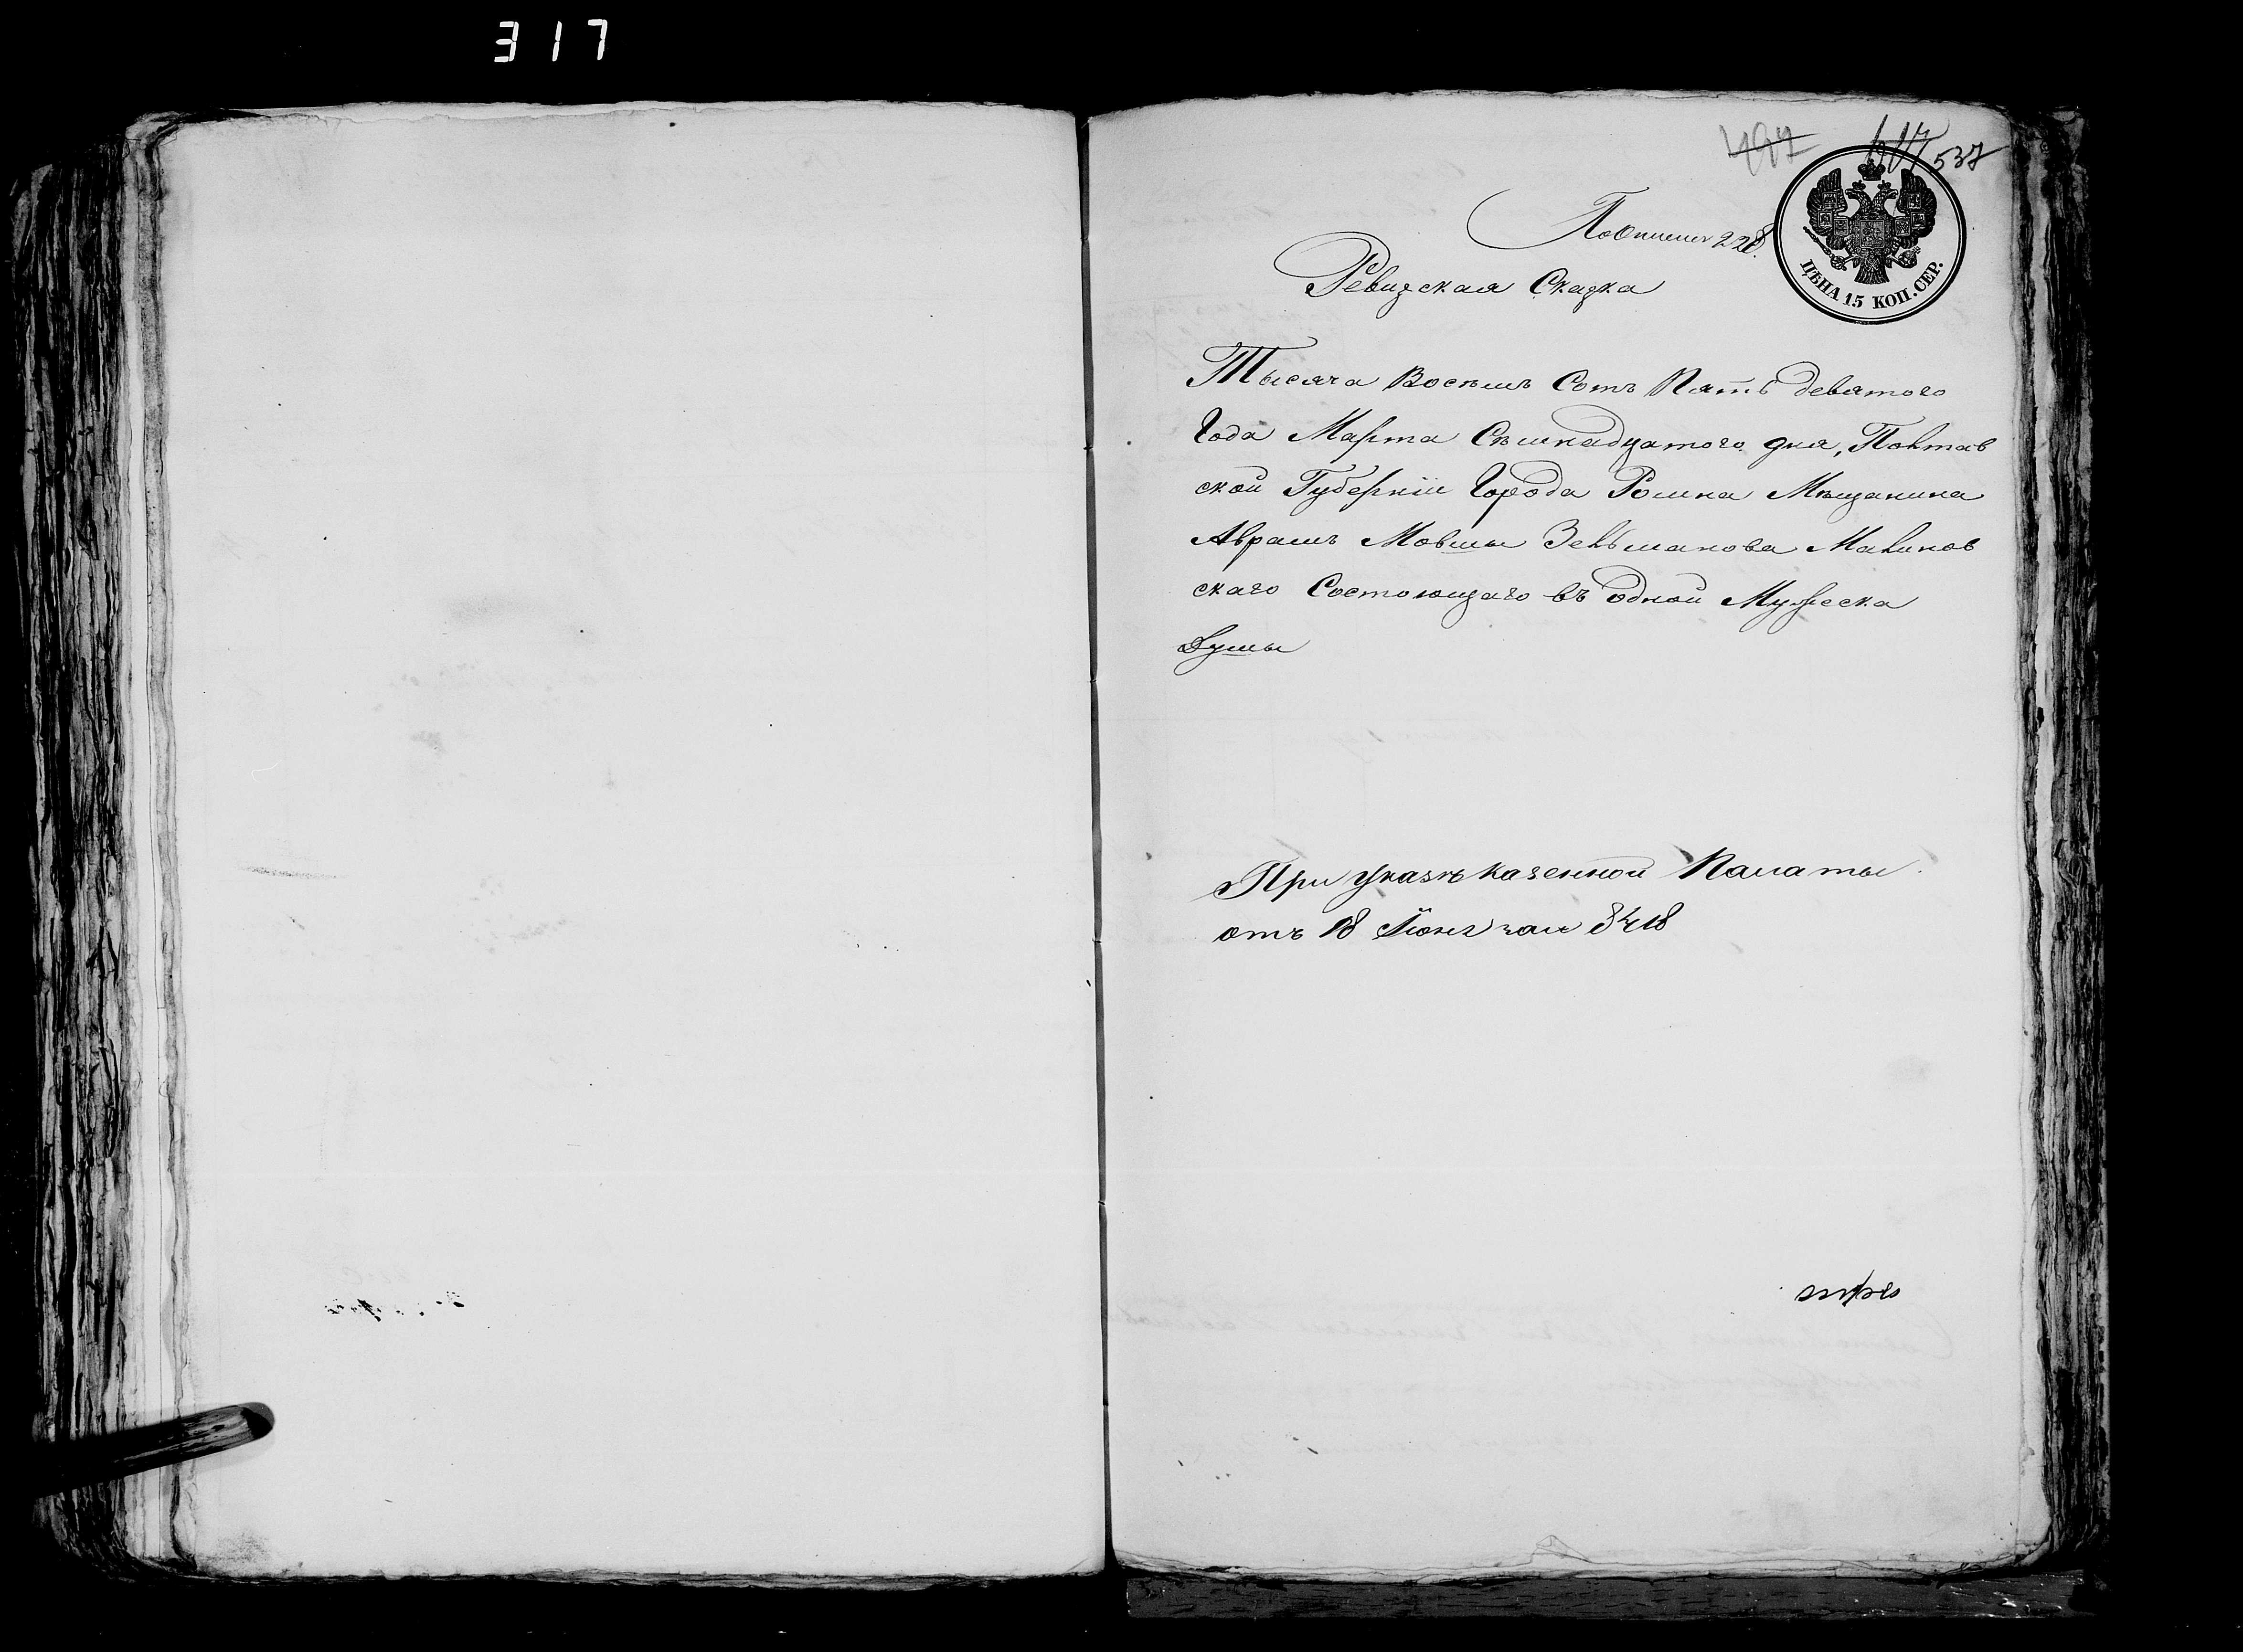 317
497
537
По описи 228.
ЦѢНА 15 КОП. СЕР.
Ревизская Сказка
Тысяча Восемь Сотъ Пять деватого
Года Марта Семнадцатого дня, Полтав
ской Губерніи Города Ромна Мѣщанина
Аврамъ Мовши Зельманова Малинов
скаго Состоющаго въ одной Мужеска
Душы
При указѣ казенной Палаты
отъ 18 Іюня за № 8418